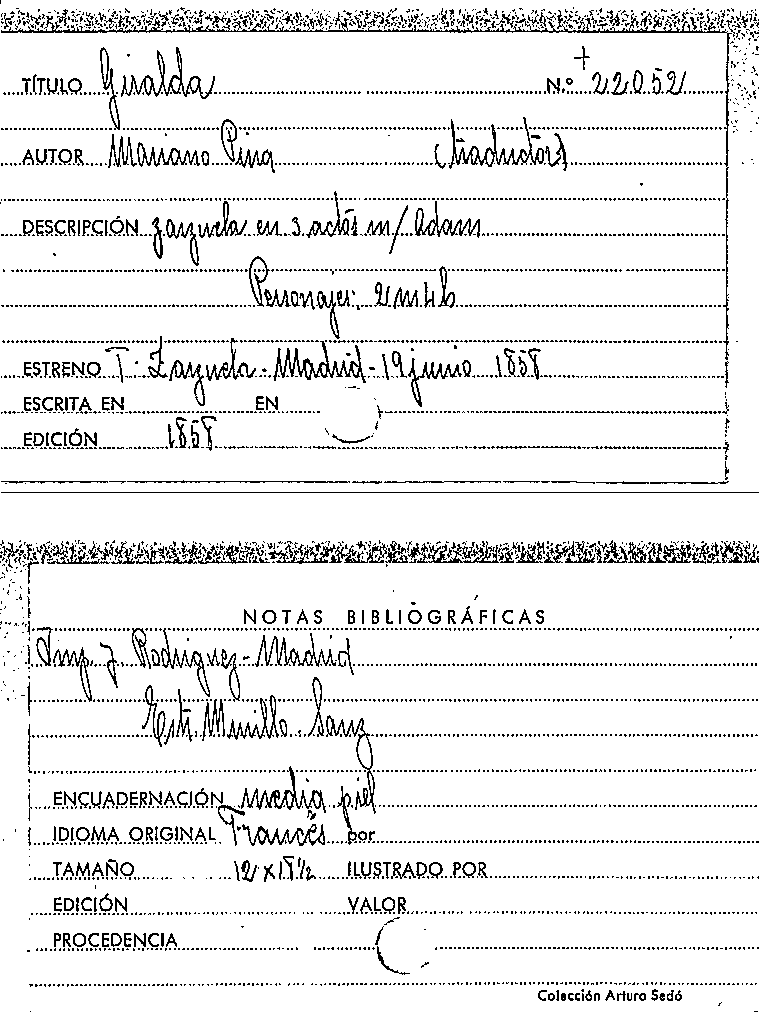 TÍTULO Giralda N.º +22052
AUTOR Mariano Pina (traductor)
DESCRIPCIÓN zarzuela en 3 actos m/ Adam
Personajes: 2m4h
ESTRENO T. Zarzuela - Madrid - 19 junio 1858
ESCRITA EN EN
EDICIÓN 1858
NOTAS BIBLIOGRÁFICAS
Imp. J. Rodriguez - Madrid
Murillo. Sanz
ENCUADERNACIÓN media piel
IDIOMA ORIGINAL Francés por
TAMAÑO 12 x 18½ ILUSTRADO POR
EDICIÓN VALOR
PROCEDENCIA
Colección Arturo Sedó